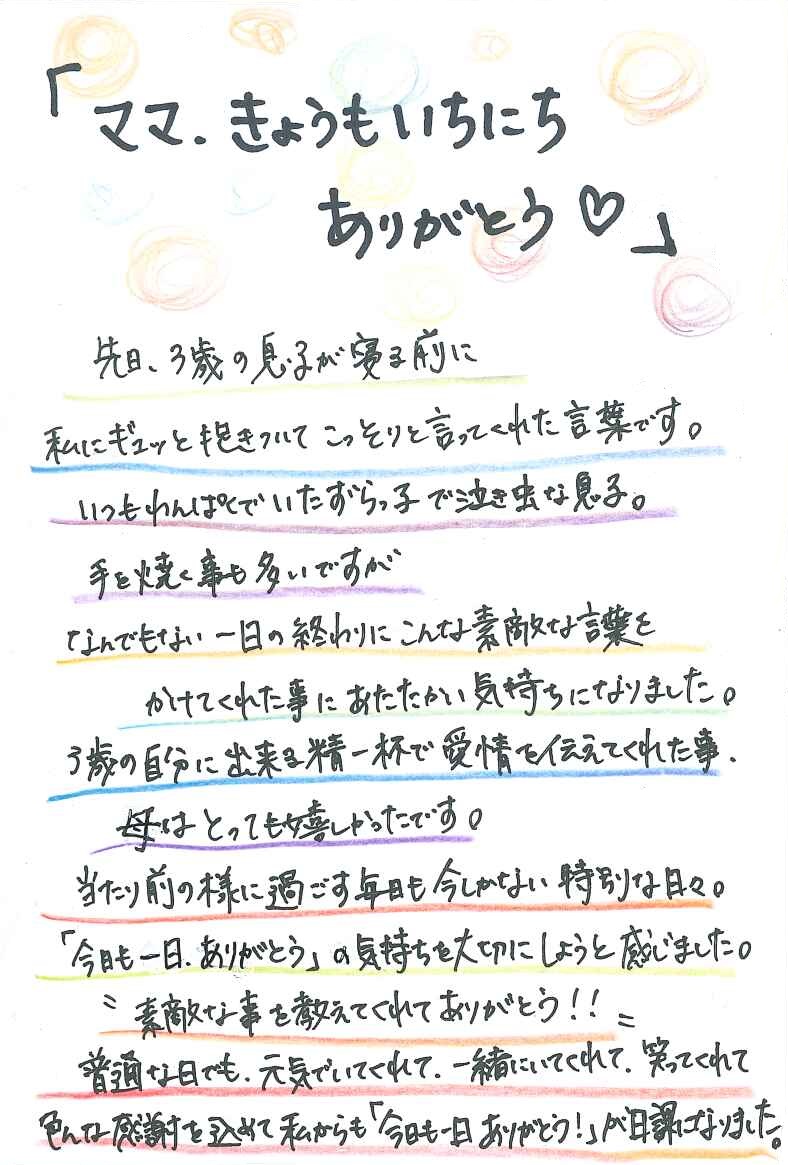 「ママ、きょうもいちにち
ありがとう♡」
先日、3歳の息子が寝る前に
私にギュッと抱きついてこっそりと言ってくれた言葉です。
いつもわんぱくでいたずらっ子で泣き虫な息子。
手を焼く事も多いですが
なんでもない一日の終わりにこんな素敵な言葉を
かけてくれた事にあたたかい気持ちになりました。
3歳の自分に出来る精一杯で愛情を伝えてくれた事、
母はとっても嬉しかったです。
当たり前の様に過ごす毎日も今しかない特別な日々。
「今日も一日、ありがとう」の気持ちを大切にしようと感じました。
〃素敵な事を教えてくれてありがとう!!〃
普通な日でも、元気でいてくれて、一緒にいてくれて、笑ってくれて
色んな感謝を込めて私からも「今日も一日ありがとう!」が日課になりました。